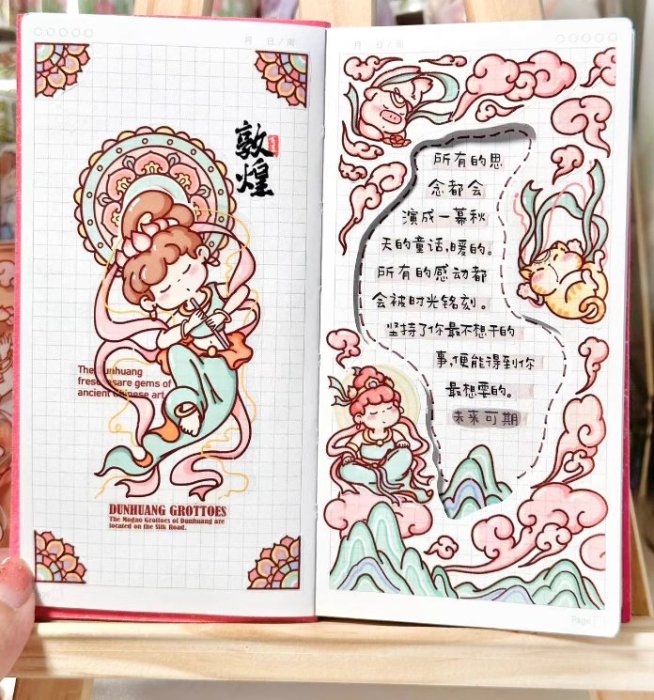 月 日/周
敦煌
The Dunhuang
frescoes are gems of
ancient Chinese art
DUNHUANG GROTTOES
The Mogao Grottoes of Dunhuang are
located on the Silk Road.
月 日/周
所有的思
念都会
演成一幕秋
天的童话,暖的。
所有的感动都
会被时光铭刻。
坚持了你最不想干的
事,便能得到你
最想要的。
未来可期
Page